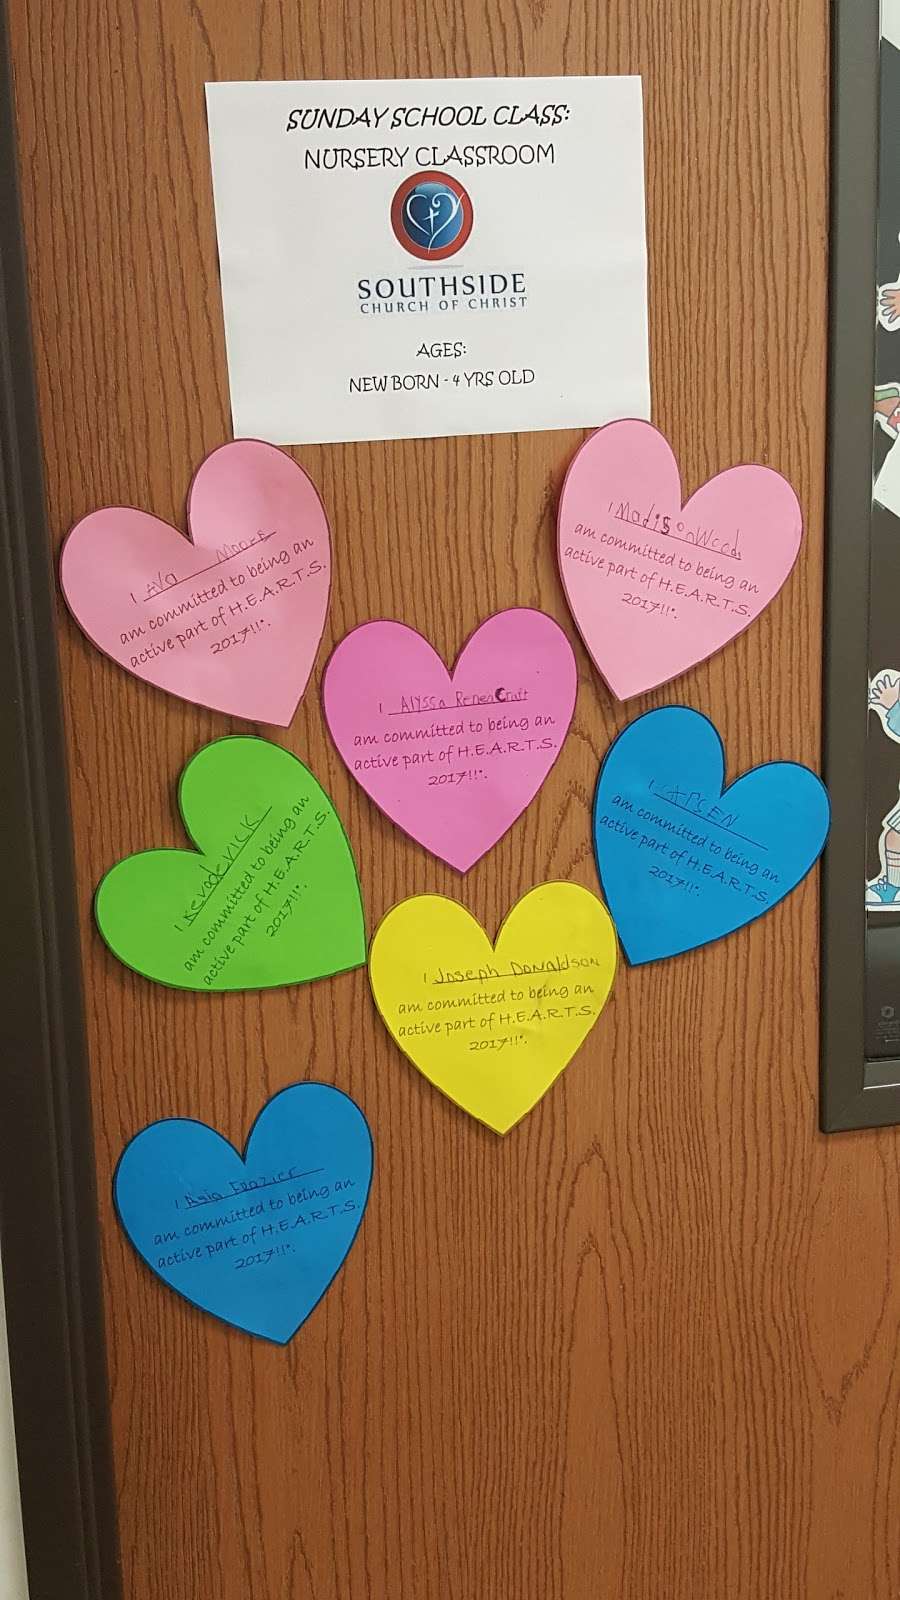 SUNDAY SCHOOL CLASS:
NURSERY CLASSROOM
SOUTHSIDE
CHURCH OF CHRIST
AGES:
NEW BORN - 4 YRS OLD
I Ava Moore
am committed to being an
active part of H.E.A.R.T.S.
2017!!".
I Madison Woods
am committed to being an
active part of H.E.A.R.T.S.
2017!!".
I Alyssa RenenCraft
am committed to being an
active part of H.E.A.R.T.S.
2017!!".
I Kevaderick
am committed to being an
active part of H.E.A.R.T.S.
2017!!".
I
am committed to being an
active part of H.E.A.R.T.S.
2017!!".
I Joseph Donaldson
am committed to being an
active part of H.E.A.R.T.S.
2017!!".
I Asia Frazier
am committed to being an
active part of H.E.A.R.T.S.
2017!!".